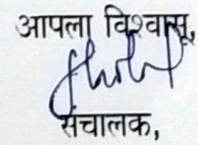 आपला विश्वासू,
संचालक,